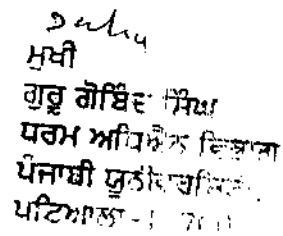 ਮੁਖੀ
ਗੁਰੂ ਗੋਬਿੰਦ ਸਿੰਘ
ਧਰਮ ਅਧਿਐਨ ਵਿਭਾਗ
ਪੰਜਾਬੀ ਯੂਨੀਵਰਸਿਟੀ
ਪਟਿਆਲਾ -